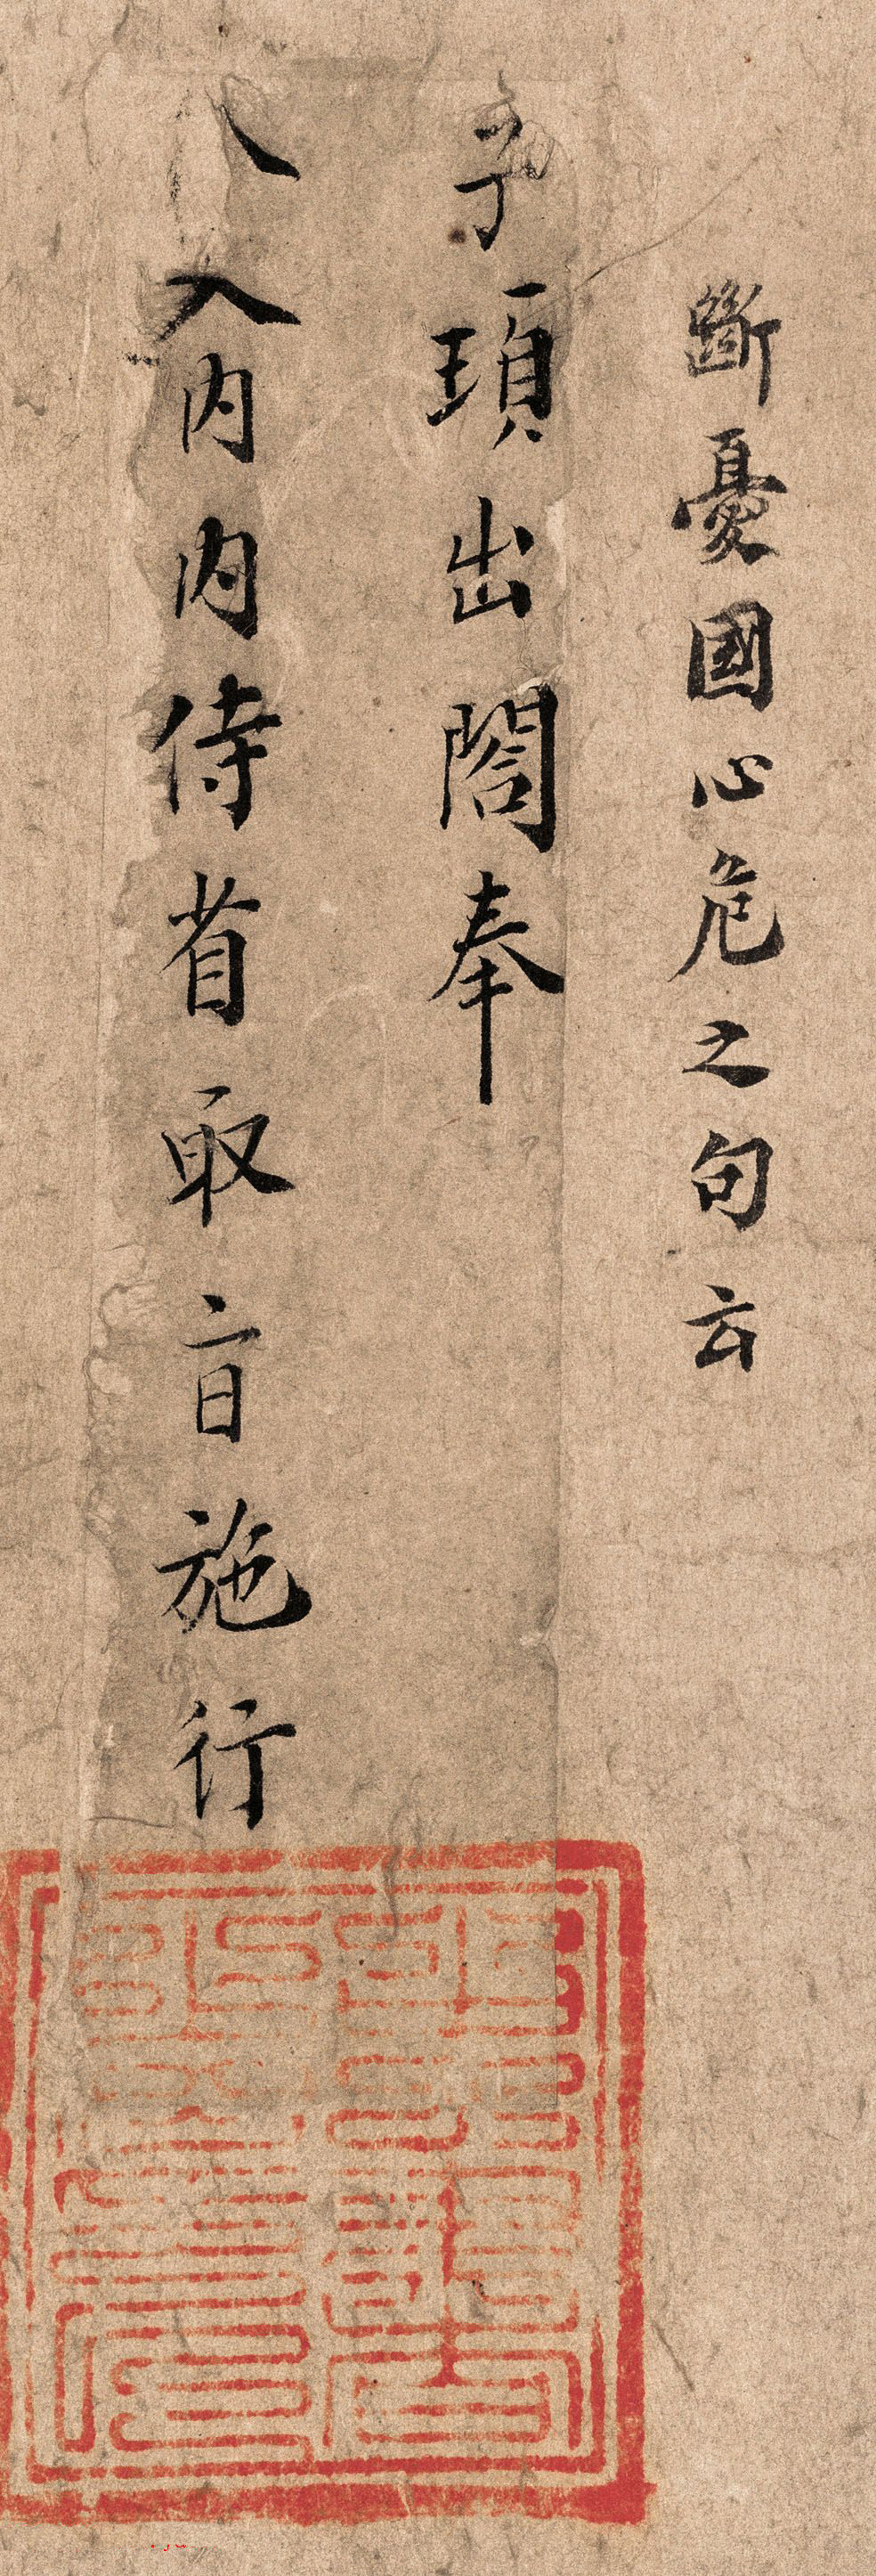 斷憂國心危之句云
子頊出閤奉
入内内侍省取旨施行